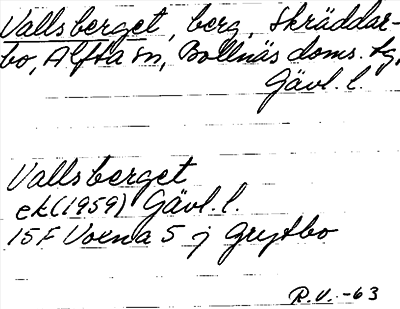 Vallsberget, berg, Skräddar-
bo, Alfta sn, Bollnäs doms. tg,
Gävl. l.
Vallsberget
ek (1959) Gävl. l.
15F Voxna 5 j Grytbo
R.V. -63